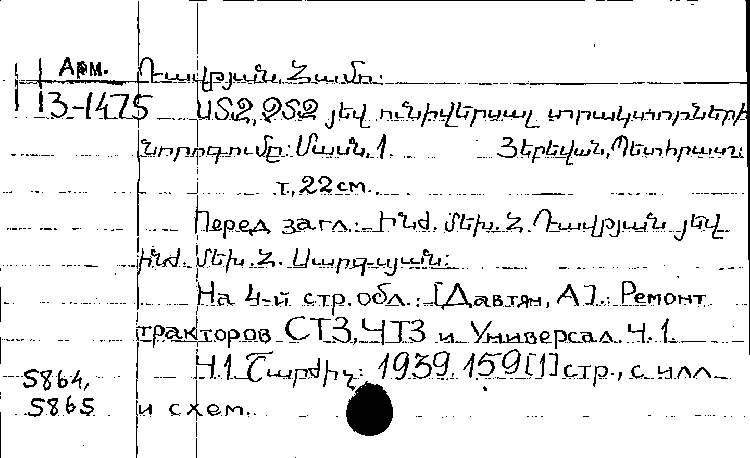 Арм. Դավթյան, Համո:
3-1475 ՍՏԶ, ՉՏԶ յեվ ունիվերսալ տրակտորների
նորոգումը: Մասն. 1. Յերեվան, Պետհրատ.
т, 22 см.
Перед загл.: Ինժ. մեխ. Հ. Դավթյան յեվ
ինժ. մեխ. Հ. Սարգսյան:
На 4-й стр. обл.: [Давтян, А]. Ремонт
тракторов СТЗ, ЧТЗ и Универсал. Ч. 1.
Ч. 1 Շարժիչ: 1939. 159[1] стр., с илл
5864,
5865 и схем.